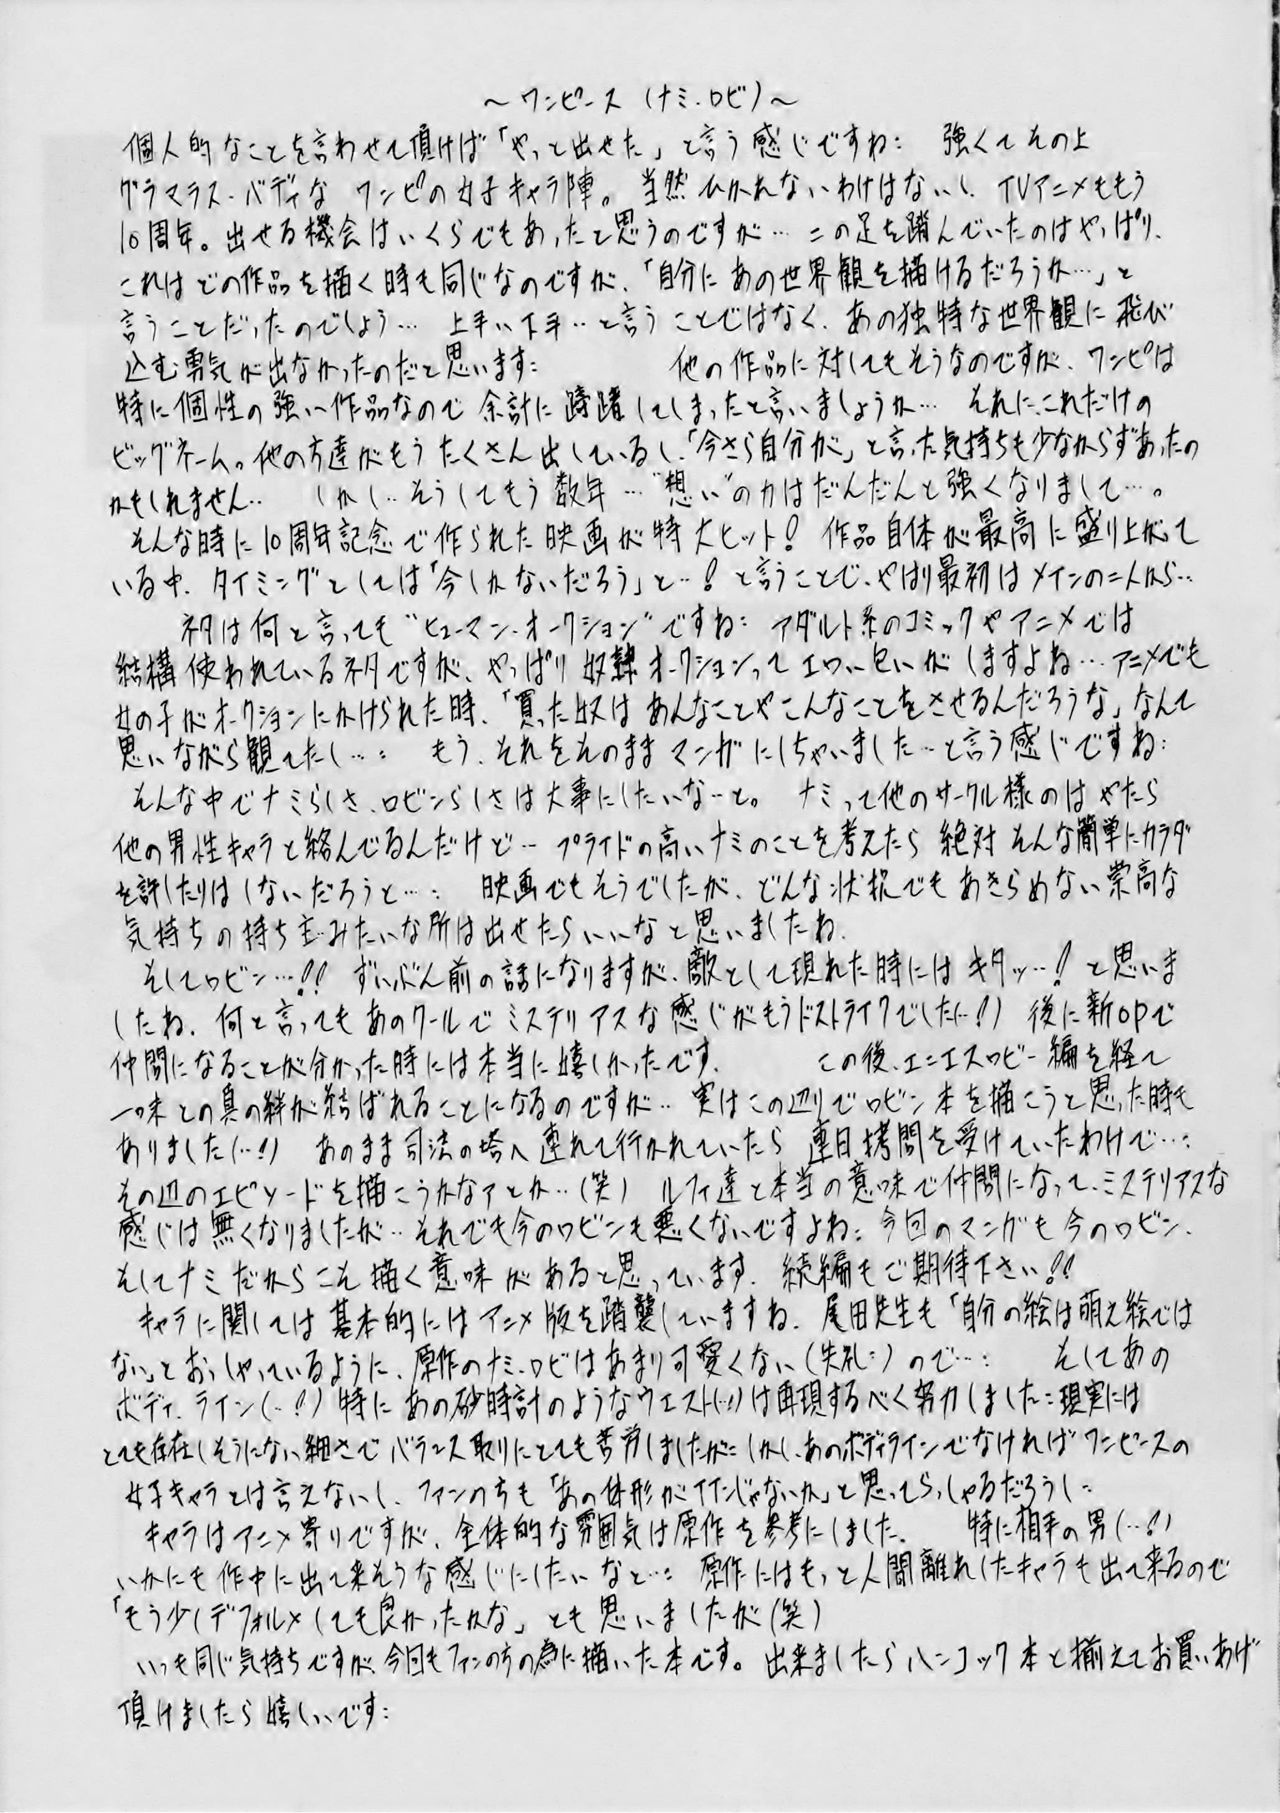 ～ワンピース（ナミ・ロビ）～
個人的なことを言わせて頂けば「やっと出せた」と言う感じですね: 強くてその上
グラマラス・バディな ワンピの女子キャラ陣。当然ひかれないわけはないし、TVアニメももう
10周年。出せる機会はいくらでもあったと思うのですが… 二の足を踏んでいたのはやっぱり、
これはどの作品を描く時も同じなのですが、「自分にあの世界観を描けるだろうか…」と
言うことだったのでしょう… 上手い下手‥と言うことではなく、あの独特な世界観に飛び
込む勇気が出なかったのだと思います: 他の作品に対してもそうなのですが、ワンピは
特に個性の強い作品なので余計に躊躇してしまったと言いましょうか… それに、これだけの
ビッグネーム。他の方達がもうたくさん出しているし、「今さら自分が」と言った気持ちも少なからずあったの
かもしれません‥ しかし‥そうしてもう数年…"想い"の力はだんだんと強くなりまして…。
そんな時に10周年記念で作られた映画が特大ヒット! 作品自体が最高に盛り上がって
いる中、タイミングとしては「今しかないだろう」と…! と言うことで、やはり最初はメインの二人から…
ネタは何と言っても"ヒューマン・オークション"ですね: アダルト系のコミックやアニメでは
結構使われているネタですが、やっぱり奴隷オークションってエロい匂いがしますよね… アニメでも
女の子がオークションにかけられた時、「買った奴はあんなことやこんなことをさせるんだろうな」なんて
思いながら観てたし…: もう、それをそのままマンガにしちゃいました…と言う感じですね:
そんな中でナミらしさ、ロビンらしさは大事にしたいなーと。 ナミって他のサークル様のはやたら
他の男性キャラと絡んでるんだけど… プライドの高いナミのことを考えたら絶対そんな簡単にカラダ
を許したりはしないだろうと…: 映画でもそうでしたが、どんな状況でもあきらめない崇高な
気持ちの持ち主みたいな所は出せたらいいなと思いましたね、
そしてロビン…!! ずいぶん前の話になりますが、敵として現れた時にはキタッ…! と思いま
したね、何と言ってもあのクールでミステリアスな感じがもうドストライクでした(…!) 後に新OPで
仲間になることが分かった時には本当に嬉しかったです、 この後、エニエスロビー編を経て
一味との真の絆が結ばれることになるのですが… 実はこの辺りでロビン本を描こうと思った時も
ありました(…!) あのまま司法の塔へ連れて行かれていたら連日拷問を受けていたわけで…:
その辺のエピソードを描こうかなァとか‥(笑) ルフィ達と本当の意味で仲間になって、ミステリアスな
感じは無くなりましたが‥それでも今のロビンも悪くないですよね: 今回のマンガも今のロビン、
そしてナミだからこそ描く意味があると思っています、続編もご期待下さい!!
キャラに関しては基本的にはアニメ版を踏襲していますね、尾田先生も「自分の絵は萌え絵では
ない」とおっしゃっているように、原作のナミ・ロビはあまり可愛くない(失礼:)ので…: そしてあの
ボディ・ライン(…!) 特にあの砂時計のようなウエスト(…!)は再現するべく努力しました: 現実には
とても存在しそうにない細さでバランス取りにとても苦労しましたが: しかし、あのボディラインでなければワンピースの
女子キャラとは言えないし、ファンの方も「あの体形がイイんじゃないか」と思ってらっしゃるだろうし:
キャラはアニメ寄りですが、全体的な雰囲気は原作を参考にしました、 特に相手の男(…!)
いかにも作中に出て来そうな感じにしたいなと…: 原作にはもっと人間離れしたキャラも出て来るので
「もう少しデフォルメしても良かったかな」とも思いましたが(笑)
いつも同じ気持ちですが、今回もファンの方の為に描いた本です。出来ましたらハンコック本と揃えてお買いあげ
頂けましたら嬉しいです: